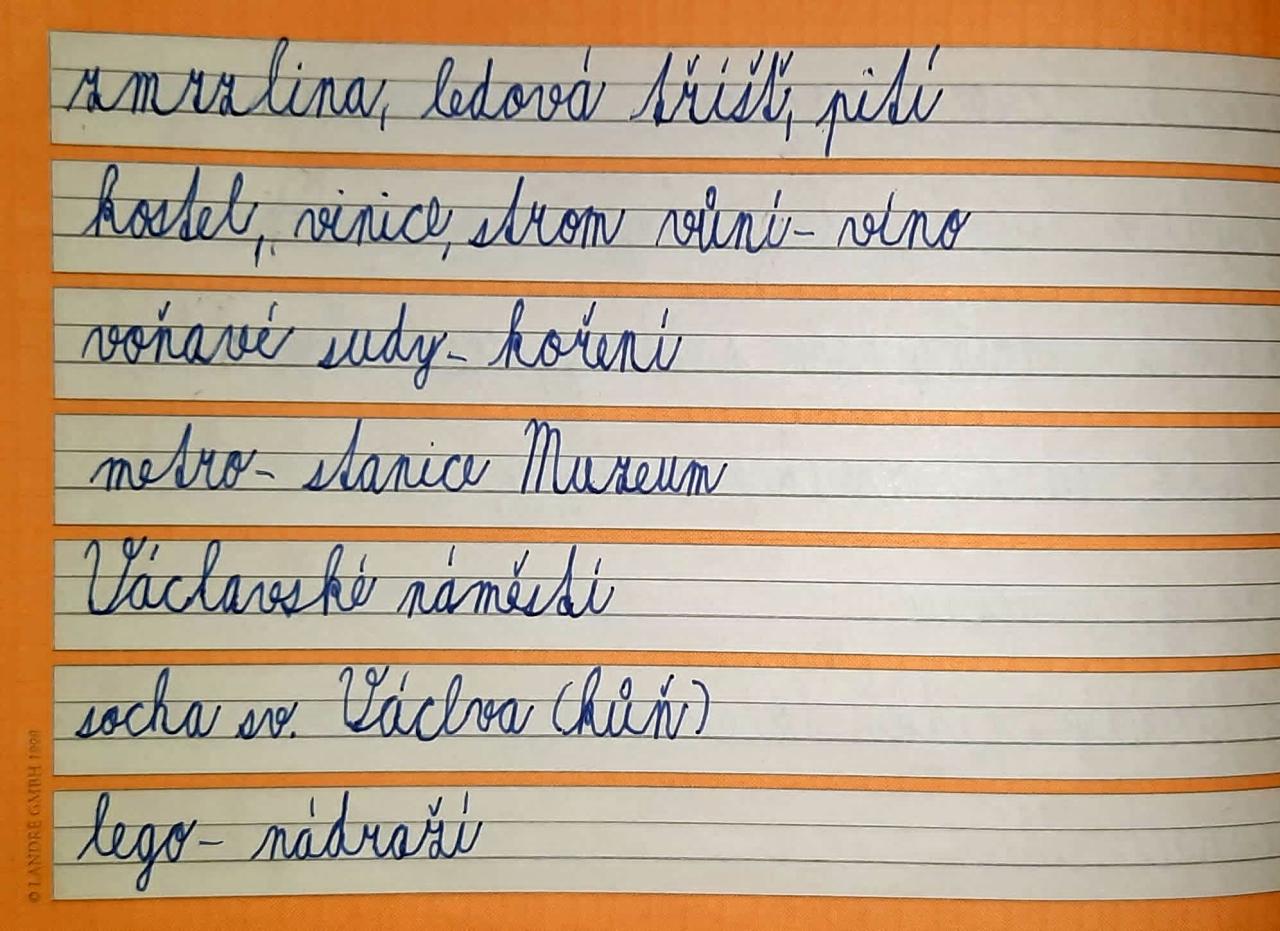 zmrzlina, ledová tříšť, pití
kostel, vinice, strom vůní - víno
voňavé sudy - koření
metro - stanice Muzeum
Václavské náměstí
socha sv. Václva (kůň)
lego - nádraží
© LANDRÉ GMBH 1999